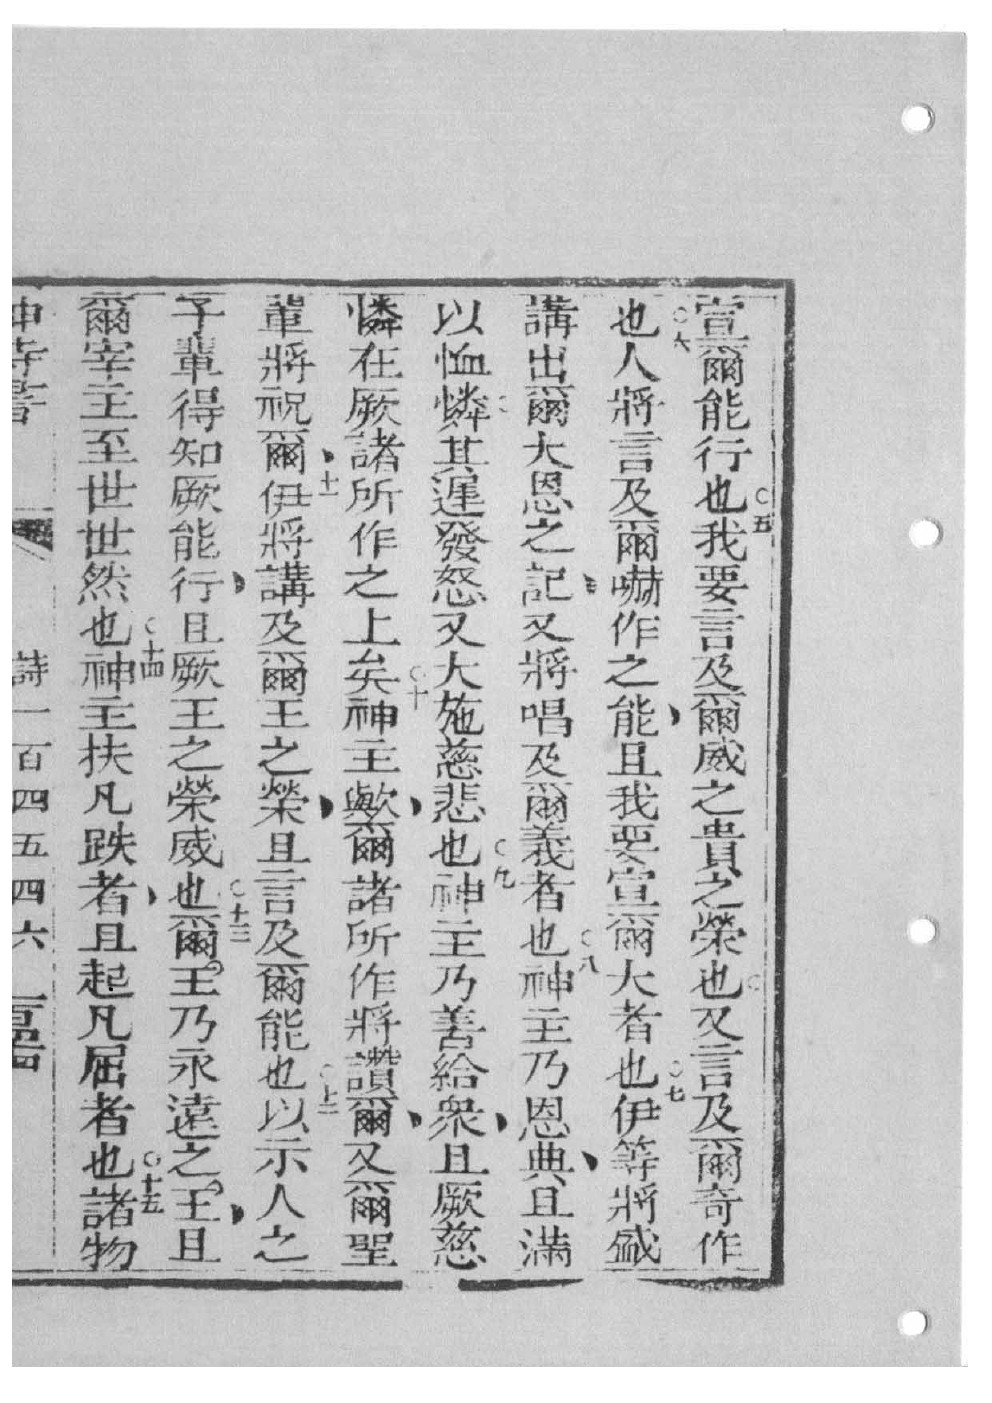 宣爾能行也○五我要言及爾威之貴之榮也○又言及爾奇作
○六也人將言及爾嚇作之能、且我要宣爾大者也○七伊等將盛
講出爾大恩之記、又將唱及爾義者也○八神主乃恩典、且滿
以恤憐、其遲發怒又大施慈悲也○九神主乃善給衆、且厥慈
憐在厥諸所作之上矣○十神主歟、爾諸所作將讚爾、又爾聖
輩將祝爾、十一伊將講及爾王之榮、且言及爾能也○十二以示人之
子輩得知厥能行、且厥王之榮威也○十三爾王乃永遠之王、且
爾宰主至世世然也○十四神主扶凡跌者、且起凡屈者也○十五諸物
神詩書 詩一百四五四六 一百四